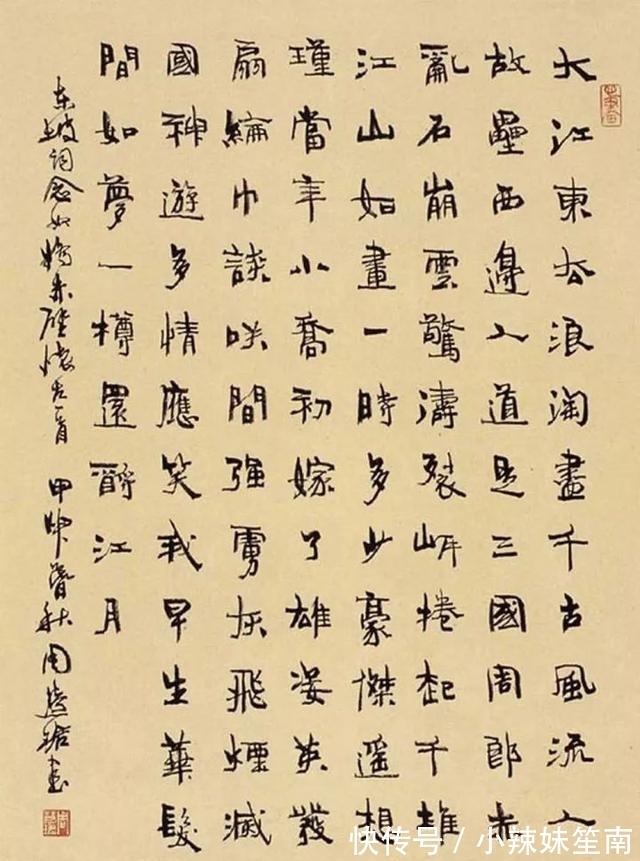 大江東去浪淘盡千古風流人
故壘西邊人道是三國周郎赤
亂石崩雲驚濤裂岸捲起千堆
江山如畫一時多少豪傑遙想
瑾當年小喬初嫁了雄姿英發
扇綸巾談咲間強虜灰飛煙滅
國神遊多情應笑我早生華髮
間如夢一樽還酹江月
東坡詞念奴嬌赤壁懷古一首 甲申暮秋周慧珺書
快传号/小辣妹笙南